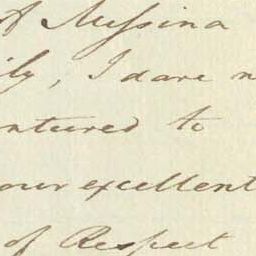 A Messina
ily, I dare n
ntured to
our excellent
of Respect